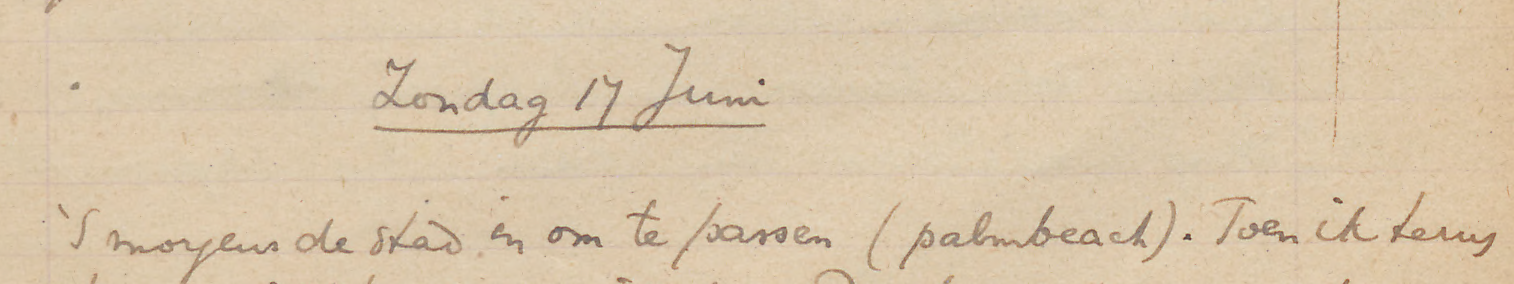 Zondag 17 Juni
'S morgens de stad in om te passen (palmbeach). Toen ik terug